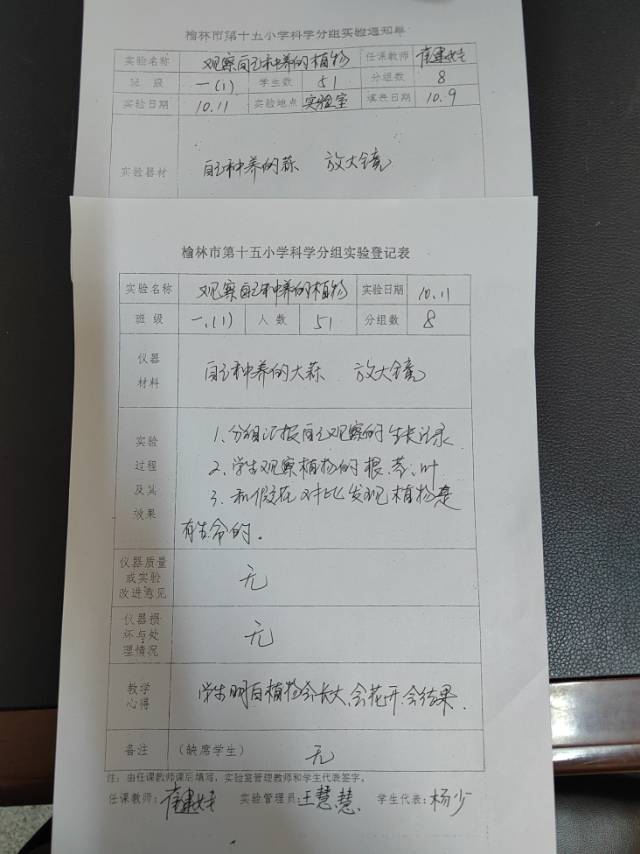 榆林市第十五小学科学分组实验通知单
实验名称 观察自己种养的植物 任课教师
班级 一(1) 学生数 51 分组数 8
实验日期 10.11 实验地点 实验室 填表日期 10.9
实验器材 自己种养的蒜 放大镜
榆林市第十五小学科学分组实验登记表
实验名称 观察自己种养的植物 实验日期 10.11
班级 一.(1) 人数 51 分组数 8
仪器
材料
自己种养的大蒜 放大镜
实验
过程
及其
效果
1、分组汇报自己观察的生长记录
2、学生观察植物的根、茎、叶
3、和假花对比发现植物是
有生命的。
仪器质量
或实验
改进意见
无
仪器损
坏与处
理情况
无
教学
心得
学生明白植物会长大、会花开、会结果.
备注 (缺席学生) 无
注: 由任课教师课后填写,实验室管理教师和学生代表签字。
任课教师: 实验管理员:王慧慧 学生代表:杨少